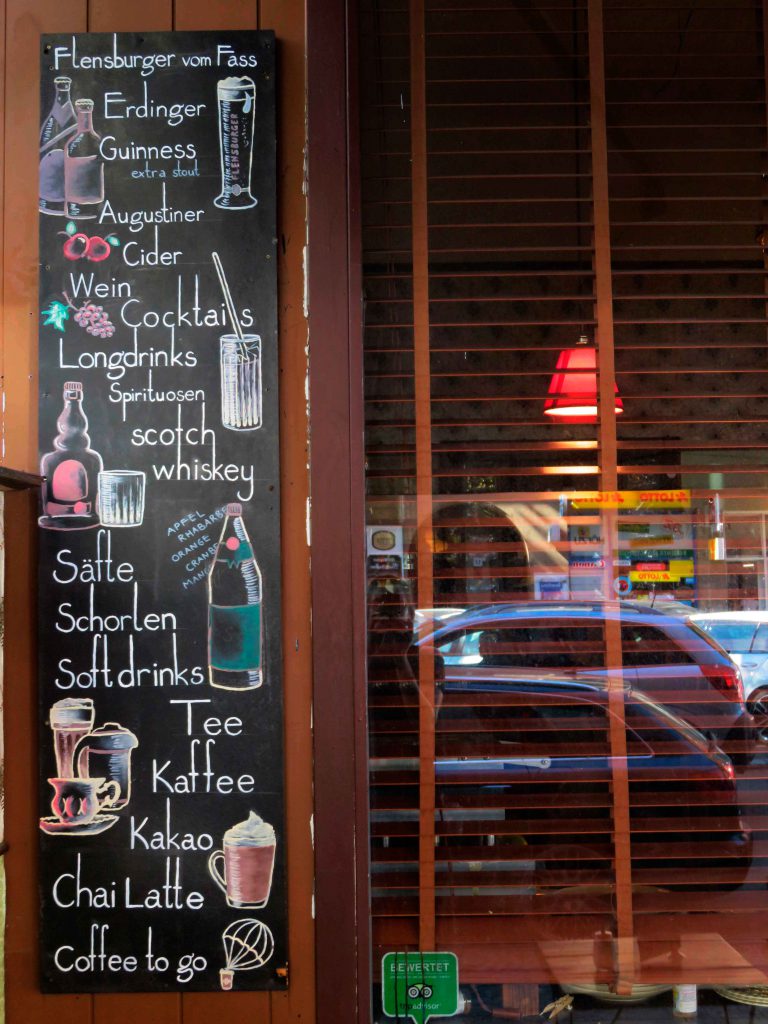 Flensburger vom Fass
Erdinger
FLENSBURGER
Guinness
extra stout
Augustiner
Cider
Wein
Cocktails
Longdrinks
Spirituosen
scotch
whiskey
APFEL
RHABARBER
ORANGE
Säfte
Schorlen
Softdrinks
Tee
Kaffee
Kakao
Chai Latte
Coffee to go
LOTTO
LOTTO
Canon
LOTTO
BEWERTET
tripadvisor